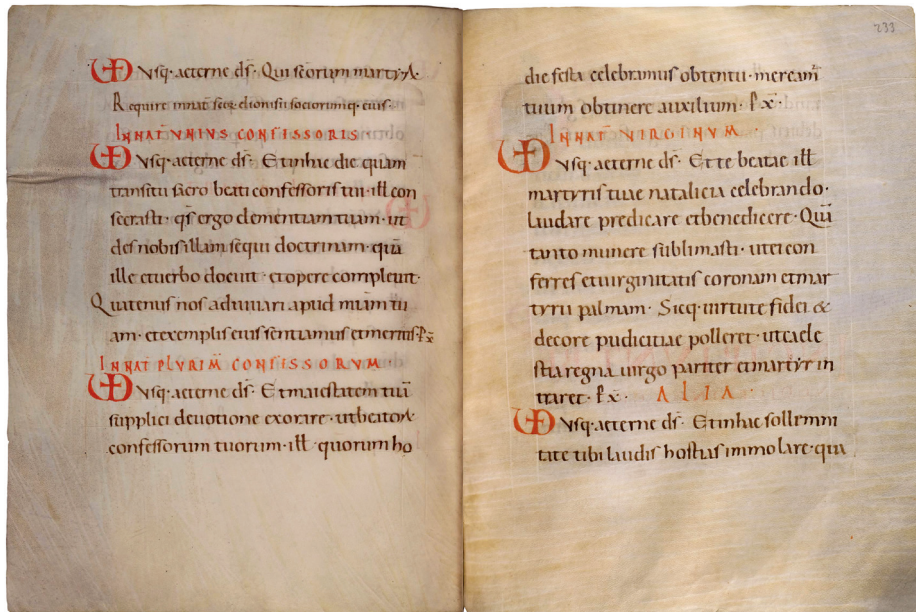 VD Vsq· aeterne d̄s· Qui sc̄orum martyꝝ
Require in nat̄ sc̄e dionisii sociorumq· eius·
IN NAT̄ VNIVS CONFISSORIS
VD Vsq· aeterne d̄s· Et in hac die quam
transitu sacro beati confessoris tui· ill̄ con
secrasti· q̄s ergo clementiam tuam· ut
des nobis illam sequi doctrinam· quā
ille et uerbo docuit· et opere compleuit·
Quatenus nos adiuuari apud mīam tu
am· et exemplis eius sentiamus et meritis· P x̄
IN NAT̄ PLVRIM̄ CONFISSORVM·
VD Vsq· aeterne d̄s· Et maiestatem tuā
supplici deuotione exorare· ut beatoꝝ
confessorum tuorum· ill̄· quorum ho
233
die festa celebramus obtentu· meream̄
tuum obtinere auxilium· P x̄·
IN NAT̄ VIRGINVM·
VD Vsq· aeterne d̄s· Et te beatae ill̄
martyris tuae natalicia celebrando·
laudare predicare et benedicere· Quā
tanto munere sublimasti· ut ei con
ferres et uirginitatis coronam et mar
tyrii palmam· Sicq· uirtute fidei &
decore pudicitiae polleret· ut caele
stia regna uirgo pariter et martyr in
traret· P x̄· ALIA·
VD Vsq· aeterne d̄s· Et in hac sollemni
tate tibi laudis hostias immolare· qua